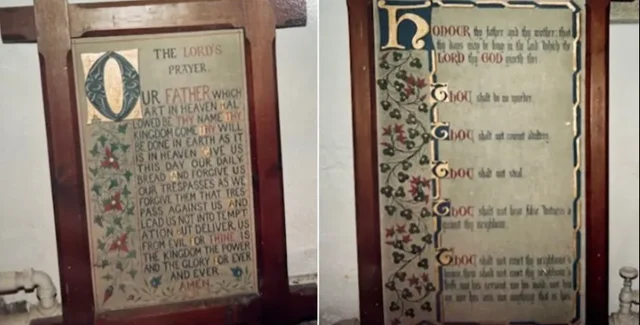 THE LORD'S
PRAYER.
OUR FATHER WHICH
ART IN HEAVEN HAL
LOWED BE THY NAME THY
KINGDOM COME THY WILL
BE DONE IN EARTH AS IT
IS IN HEAVEN GIVE US
THIS DAY OUR DAILY
BREAD AND FORGIVE US
OUR TRESPASSES AS WE
FORGIVE THEM THAT TRES
PASS AGAINST US AND
LEAD US NOT INTO TEMPT
ATION BUT DELIVER US
FROM EVIL FOR THINE IS
THE KINGDOM THE POWER
AND THE GLORY FOR EVER
AND EVER
AMEN.
HONOUR thy father and thy mother: that
thy days may be long in the land which the
LORD thy GOD giveth thee.
THOU shalt do no murder.
THOU shalt not commit adultery.
THOU shalt not steal.
THOU shalt not bear false witness a
gainst thy neighbour.
THOU shalt not covet thy neighbour's
house thou shalt not covet thy neighbour's
wife nor his servant, nor his maid, nor his
ox nor his ass nor anything that is his.